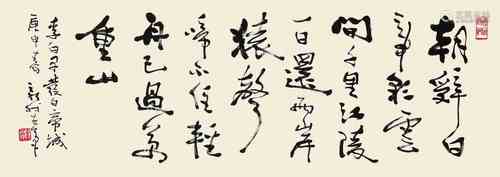 朝辭白
帝彩雲
間千里江陵
一日還兩岸
猿聲
啼不住輕
舟已過萬
重山
李白早發白帝城
庚申春